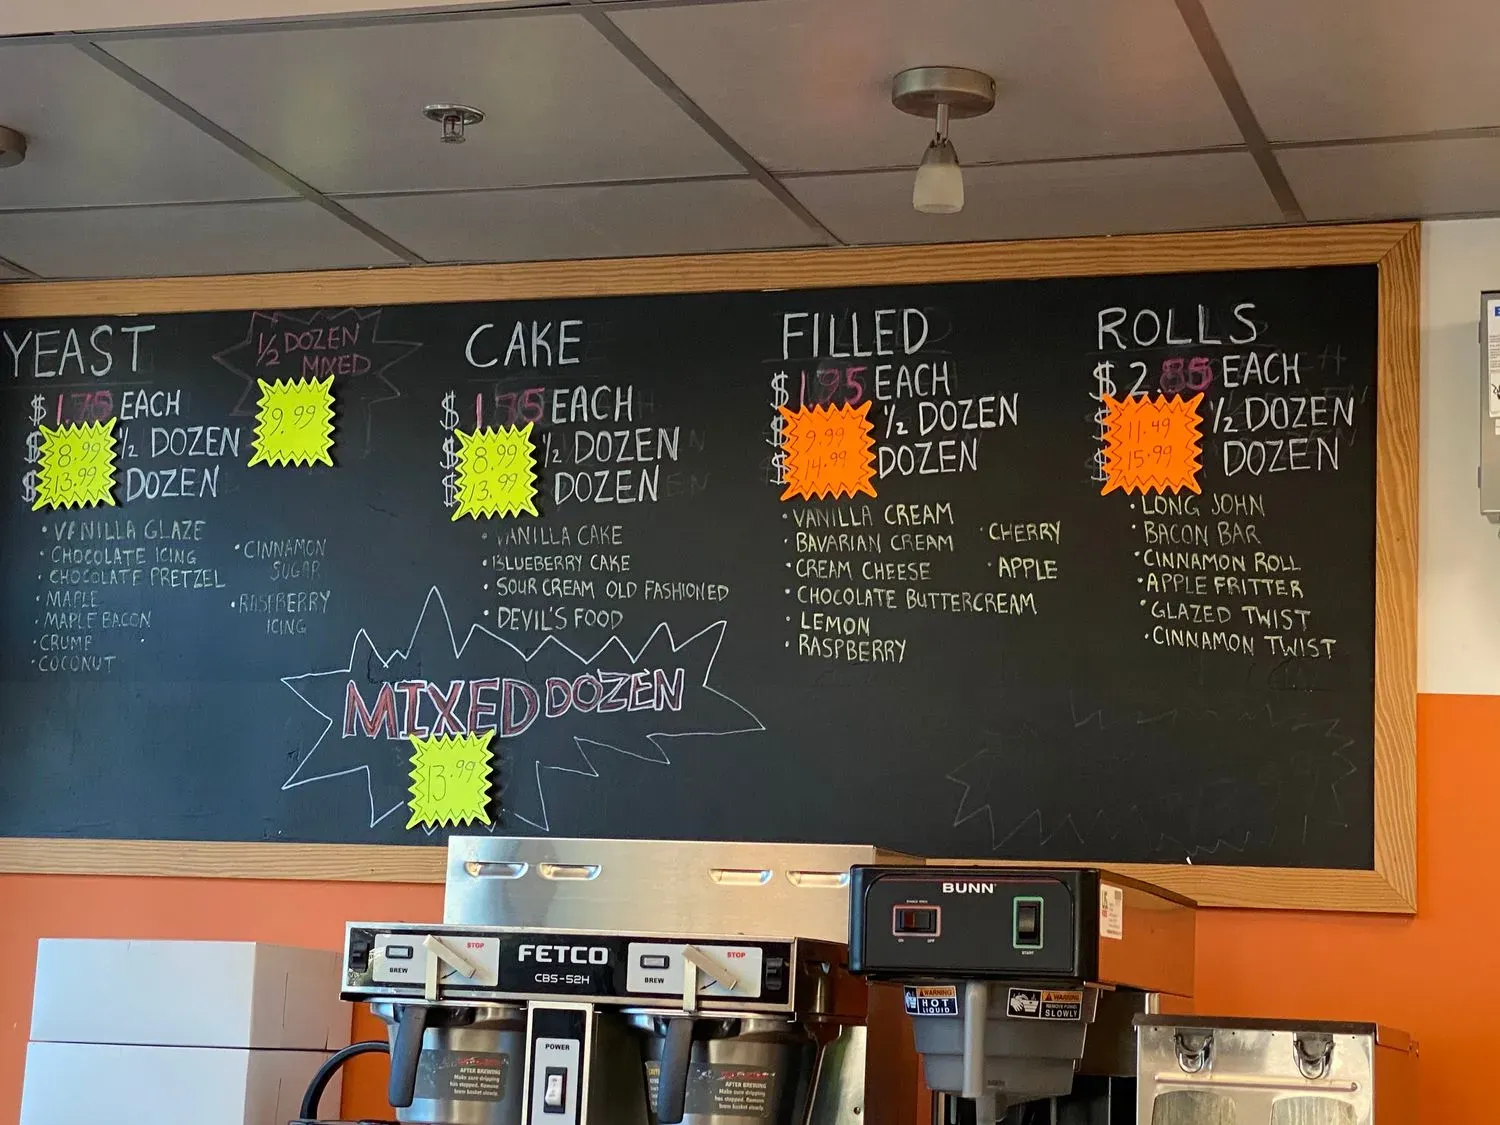 YEAST
$1.75 EACH
$8.99 ½ DOZEN
$13.99 DOZEN
• VANILLA GLAZE
• CHOCOLATE ICING
• CHOCOLATE PRETZEL
• MAPLE
• MAPLE BACON
• CRUMB
• COCONUT
• CINNAMON
SUGAR
• RASPBERRY
ICING
½ DOZEN
MIXED
9.99
CAKE
$1.75 EACH
$8.99 ½ DOZEN
$13.99 DOZEN
• VANILLA CAKE
• BLUEBERRY CAKE
• SOUR CREAM OLD FASHIONED
• DEVIL'S FOOD
MIXED DOZEN
13.99
FILLED
$1.95 EACH
$9.99 ½ DOZEN
$14.99 DOZEN
• VANILLA CREAM
• BAVARIAN CREAM
• CREAM CHEESE
• CHOCOLATE BUTTERCREAM
• LEMON
• RASPBERRY
• CHERRY
• APPLE
ROLLS
$2.85 EACH
$11.49 ½ DOZEN
$15.99 DOZEN
• LONG JOHN
• BACON BAR
• CINNAMON ROLL
• APPLE FRITTER
• GLAZED TWIST
• CINNAMON TWIST
FETCO
CBS-52H
BREW
STOP
BREW
STOP
POWER
AFTER BREWING
Make sure dripping
has stopped. Remove
brew basket slowly.
AFTER BREWING
Make sure dripping
has stopped. Remove
brew basket slowly.
BUNN
ON OFF
START
WARNING
HOT
LIQUID
WARNING
SLOWLY